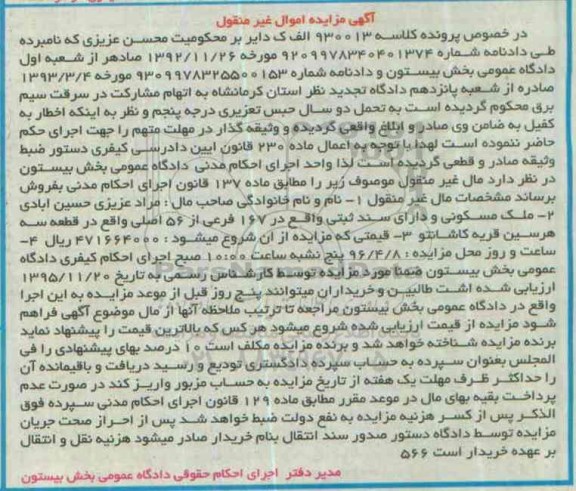 آگهی مزایده اموال غیر منقول
در خصوص پرونده کلاسه ۹۳۰۰۱۳ الف ک دایر بر محکومیت محسن عزیزی که نامبرده
طی دادنامه شماره ۹۲۰۹۹۷۸۳۴۰۴۰۱۳۷۴ مورخه ۱۳۹۲/۱۱/۲۶ صادهر از شعبه اول
دادگاه عمومی بخش بیستون و دادنامه شماره ۹۳۰۹۹۷۸۳۲۵۵۰۰۱۵۳ مورخه ۱۳۹۳/۳/۴
صادره از شعبه پانزدهم دادگاه تجدید نظر استان کرمانشاه به اتهام مشارکت در سرقت سیم
برق محکوم گردیده است به تحمل دو سال حبس تعزیری درجه پنجم و نظر به اینکه اخطار به
کفیل به ضامن وی صادر و ابلاغ واقعی گردیده و وثیقه گذار در مهلت متهم را جهت اجرای حکم
حاضر ننموده است لهذا با توجه به اعمال ماده ۲۳۰ قانون ایین دادرسی کیفری دستور ضبط
وثیقه صادر و قطعی گردیده است لذا واحد اجرای احکام مدنی دادگاه عمومی بخش بیستون
در نظر دارد مال غیر منقول موصوف زیر را مطابق ماده ۱۳۷ قانون اجرای احکام مدنی بفروش
برساند مشخصات مال غیر منقول ۱- نام و نام خانوادگی صاحب مال : مراد عزیزی حسین ابادی
۲- ملک مسکونی و دارای سند ثبتی واقع در ۱۶۷ فرعی از ۵۶ اصلی واقع در قطعه سه
هرسین قریه کاشانتو ۳- قیمتی که مزایده از ان شروع میشود : ۴۷۱۶۶۴۰۰۰ ریال ۴-
ساعت و روز محل مزایده : ۹۶/۴/۸ پنج نشبه ساعت ۱۰:۰۰ صبح اجرای احکام کیفری دادگاه
عمومی بخش بیستون ضمنا مورد مزایده توسط کارشناس رسمی به تاریخ ۱۳۹۵/۱۱/۲۰
ارزیابی شده اشت طالبین و خریداران میتوانند پنج روز قبل از موعد مزایده به این اجرا
واقع در دادگاه عمومی بخش بیستون مراجعه تا ترتیب ملاحظه آنها از مال موضوع آگهی فراهم
شود مزایده از قیمت ارزیابی شده شروع میشود هر کس که بالاترین قیمت را پیشنهاد نماید
برنده مزایده شناخته خواهد شد و برنده مزایده مکلف است ۱۰ درصد بهای پیشنهادی را فی
المجلس بعنوان سپرده به حساب سپرده دادگستری تودیع و رسید دریافت و باقیمانده آن
را حداکثر ظرف مهلت یک هفته از تاریخ مزایده به حساب مزبور واریز کند در صورت عدم
پرداخت بقیه بهای مال در موعد مقرر مطابق ماده ۱۲۹ قانون اجرای احکام مدنی سپرده فوق
الذکر پس از کسر هزنیه مزایده به نفع دولت ضبط خواهد شد پس از احراز صحت جریان
مزایده توسط دادگاه دستور صدور سند انتقال بنام خریدار صادر میشود هزنیه نقل و انتقال
بر عهده خریدار است ۵۶۶
مدیر دفتر اجرای احکام حقوقی دادگاه عمومی بخش بیستون